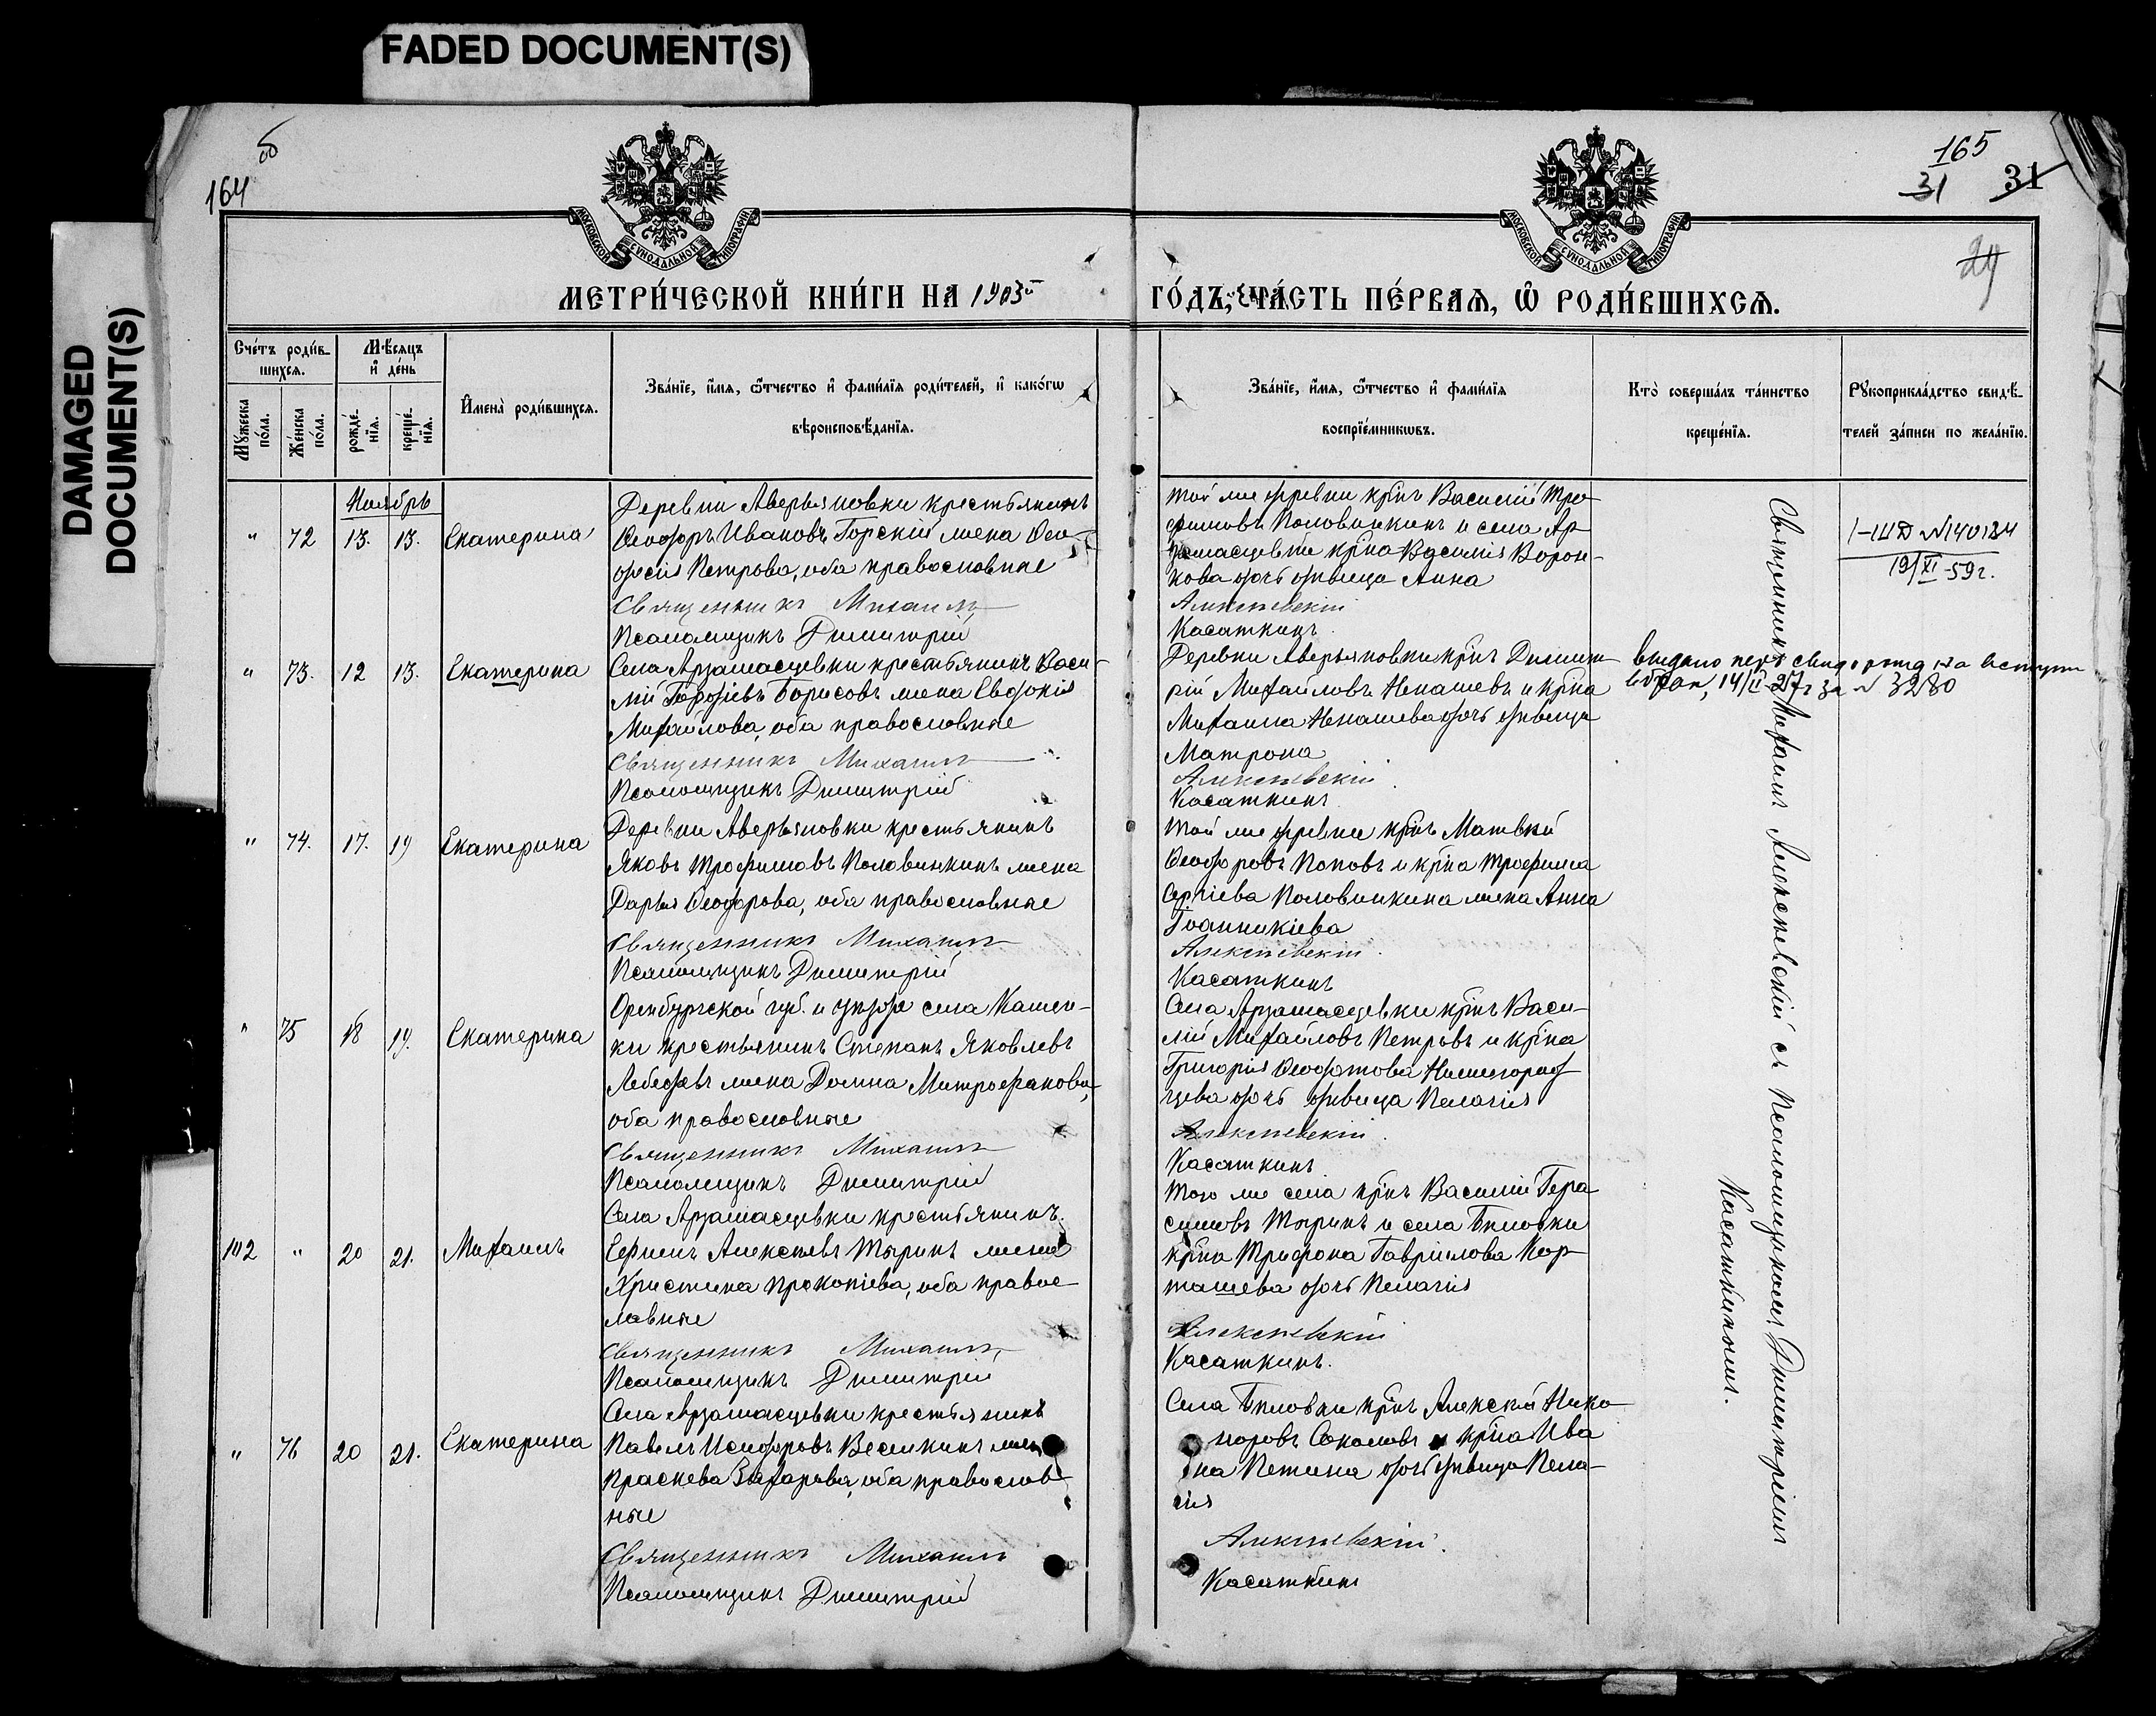 FADED DOCUMENT(S)
DAMAGED
DOCUMENT(S)
об
164
165
31
31
МОСКОВСКОЙ СѴНОДАЛЬНОЙ ТИПОГРАФІИ
МОСКОВСКОЙ СѴНОДАЛЬНОЙ ТИПОГРАФІИ
МЕТРИ́ЧЕСКОЙ КНИ́ГИ НА 1903й
ГО́ДЪ, ЧА́СТЬ ПЕ́РВАѦ, Ѽ РОДИ́ВШИХСѦ.
Сче́тъ роди́в-
шихсѧ.
Мꙋжеска
по́ла.
Же́нска
по́ла.
Мѣ́сѧцъ
и҆ де́нь
рожде́-
нїѧ.
креще́-
нїѧ.
И҆мена̀ роди́вшихсѧ.
Зва́нїе, и҆́мѧ, ѻ҆́тчество и҆ фами́лїѧ роди́телей, и҆ како́гѡ
вѣроисповѣ́данїѧ.
Зва́нїе, и҆́мѧ, ѻ҆́тчество и҆ фами́лїѧ
воспрїе́мникѡвъ.
Кто̀ соверша́лъ та́инство
креще́нїѧ.
Рꙋкоприкла́дство свидѣ́-
телей за́писи по жела́нїю.
Ноябрь
" 72 13. 13. Екатерина
Деревни Аверьяновки крестьянинъ
Ѳеодоръ Ивановъ Горскій жена Ѳео-
досія Петрова, оба православные
Священникъ Михаилъ
Псаломщикъ Димитрій
той же деревни кр̃нъ Василій Тро-
фимовъ Половинкинъ и села Ар-
замасцевки кр̃на Василія Ворон-
кова дочь дѣвица Анна
Алексѣевскій
Касаткинъ
19/XI-59 г.
" 73. 12 13. Екатерина
Села Арзамасцевки крестьянинъ Васи-
лій Борисовъ жена Евдокія
Михайлова, оба православные
Священникъ Михаилъ
Псаломщикъ Димитрій
Деревни Аверьяновки кр̃нъ Димит-
рій Михайловъ Ненашевъ и кр̃на
Михаила Ненашева дочь дѣвица
Матрона
Алексѣевскій
Касаткинъ
в брак, 14/II-27г за № 3280
" 74. 17. 19 Екатерина
Деревни Аверьяновки крестьянинъ
Яковъ Трофимовъ Половинкинъ жена
Дарья Ѳеодорова, оба православные
Священникъ Михаилъ
Псаломщикъ Димитрій
Той же деревни кр̃нъ Матвѣй
Ѳеодоровъ Поповъ и кр̃на Трофима
Сергіева Половинкина жена Анна
Іоанникіева
Алексѣевскій
Касаткинъ
" 75 18 19. Екатерина
Оренбургской губ. и уѣзда села Камен-
ки крестьянинъ Стефанъ Яковлевъ
Лебедевъ жена Домна Митрофанова,
оба православные
Священникъ Михаилъ
Псаломщикъ Димитрій
Села Арзамасцевки кр̃нъ Васи-
лій Михайловъ Петровъ и кр̃на
Григорія Ѳеодотова Нижегород-
цева дочь дѣвица Пелагія
Алексѣевскій
Касаткинъ
102 " 20 21. Михаилъ
Села Арзамасцевки крестьянинъ
Ефимъ Алексѣевъ Тыринъ жена
Христина Прокопіева, оба правос-
лавные
Священникъ Михаилъ
Псаломщикъ Димитрій
Того же села кр̃нъ Василій Гера-
симовъ Тыринъ и села Бѣловки
кр̃на Трифона Гавріилова Кар-
ташева дочь Пелагія
Алексѣевскій
Касаткинъ.
" 76 20 21. Екатерина
Села Арзамасцевки крестьянинъ
Павелъ Исидоровъ Веселкинъ жена
Праскева Захарова, оба православ-
ные
Священникъ Михаилъ
Псаломщикъ Димитрій
Села Бѣловки кр̃нъ Алексѣй Ника-
норовъ Соколовъ и кр̃на Ива-
на Петина дочь дѣвица Пела-
гія
Алексѣевскій.
Касаткинъ
Священникъ Михаилъ Алексѣевскій съ Псаломщикомъ Димитріемъ
Касаткинымъ.